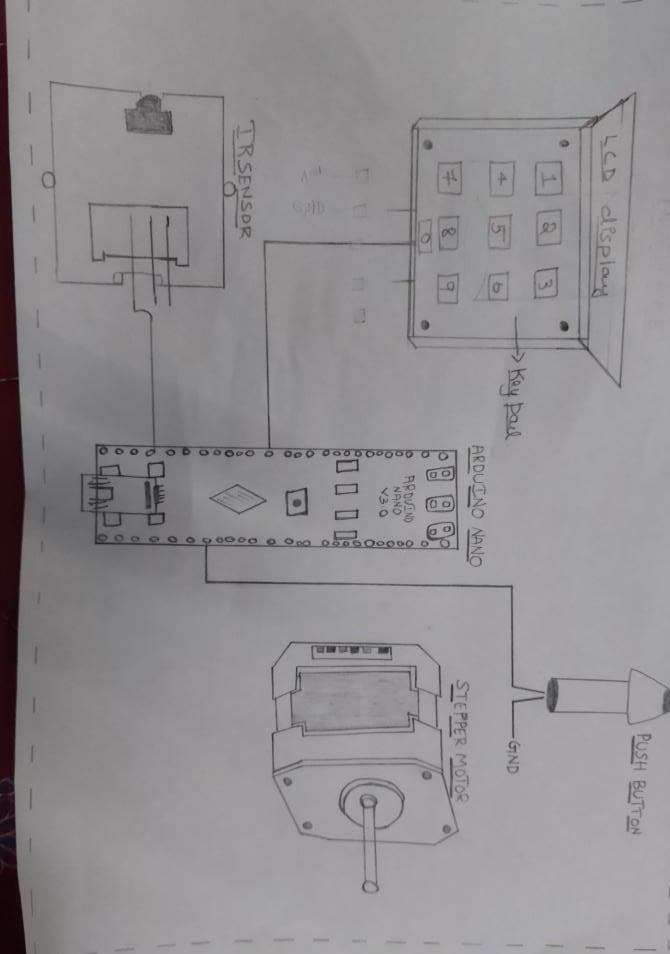 LCD display
1 2 3
4 5 6
7 8 9
0
Key pad
IRSENSOR
ARDUINO NANO
ARDUINO
NANO
V3.0
PUSH BUTTON
GND
STEPPER MOTOR